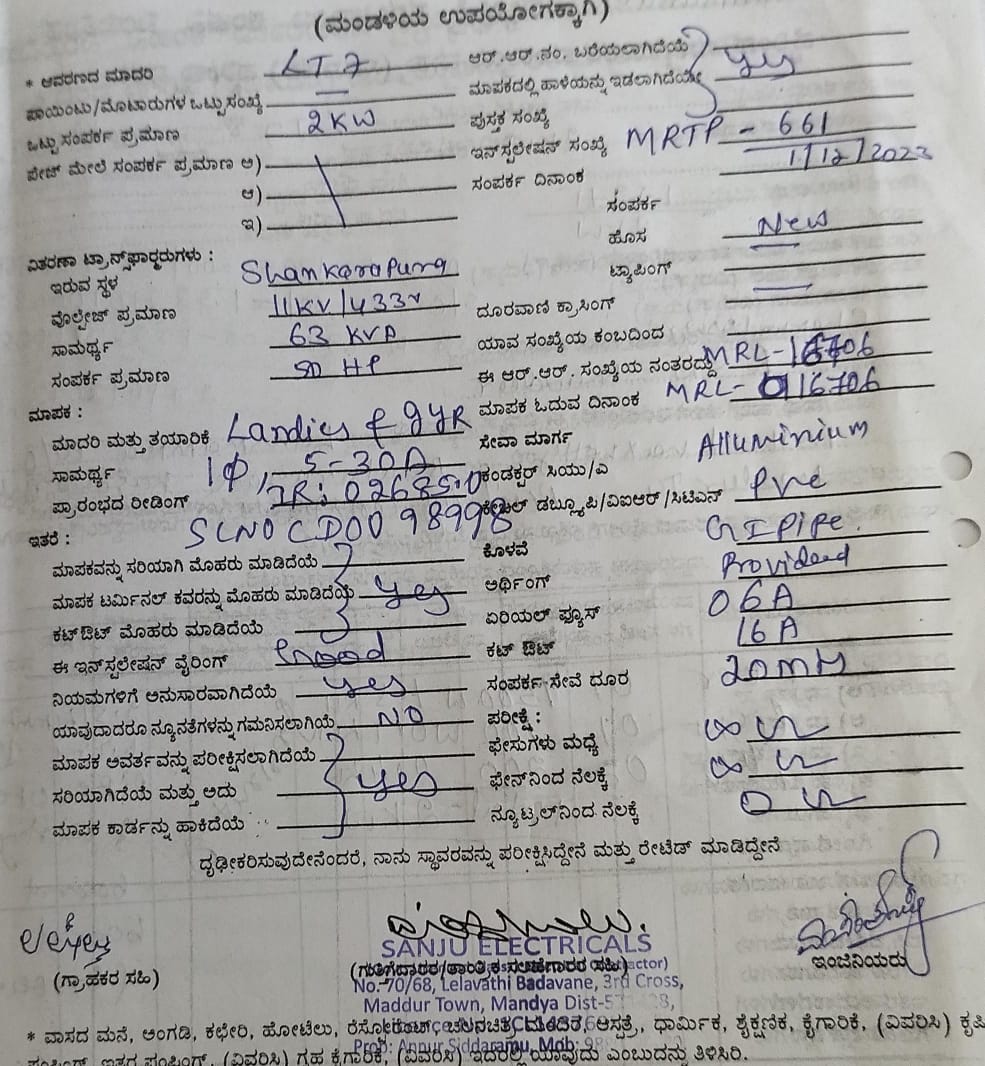 (ಮಂಡಳಿಯ ಉಪಯೋಗಕ್ಕಾಗಿ)
* ಆವರಣದ ಮಾದರಿ LT7 ಆರ್.ಆರ್.ನಂ. ಬರೆಯಲಾಗಿದೆಯೆ yes
ಪಾಯಿಂಟು/ಮೋಟಾರುಗಳ ಒಟ್ಟು ಸಂಖ್ಯೆ — ಮಾಪಕದಲ್ಲಿ ಹಾಳೆಯನ್ನು ಇಡಲಾಗಿದೆಯೇ
ಒಟ್ಟು ಸಂಪರ್ಕ ಪ್ರಮಾಣ 2KW ಪುಸ್ತಕ ಸಂಖ್ಯೆ
ಪೇಜ್ ಮೇಲೆ ಸಂಪರ್ಕ ಪ್ರಮಾಣ ಅ) ಇನ್‌ಸ್ಟಲೇಷನ್ ಸಂಖ್ಯೆ MRTP - 661
ಆ) ಸಂಪರ್ಕ ದಿನಾಂಕ 1/12/2023
ಇ) ಸಂಪರ್ಕ
ಹೊಸ New
ವಿತರಣಾ ಟ್ರಾನ್ಸ್‌ಫಾರ್ಮರುಗಳು :
ಇರುವ ಸ್ಥಳ Shankarapura ಟ್ಯಾಪಿಂಗ್ —
ವೊಲ್ಟೇಜ್ ಪ್ರಮಾಣ 11KV/433v ದೂರವಾಣಿ ಕ್ರಾಸಿಂಗ್ —
ಸಾಮರ್ಥ್ಯ 63 KVA ಯಾವ ಸಂಖ್ಯೆಯ ಕಂಬದಿಂದ
ಸಂಪರ್ಕ ಪ್ರಮಾಣ HP ಈ ಆರ್.ಆರ್. ಸಂಖ್ಯೆಯ ನಂತರದ್ದು MRL-16706
ಮಾಪಕ : ಮಾಪಕ ಓದುವ ದಿನಾಂಕ MRL-16706
ಮಾದರಿ ಮತ್ತು ತಯಾರಿಕೆ Landics & gYR ಸೇವಾ ಮಾರ್ಗ
ಸಾಮರ್ಥ್ಯ 1Φ, 5-30A ಕಂಡಕ್ಟರ್ ಸಿಯು/ಎ Alluminium
ಪ್ರಾರಂಭದ ರೀಡಿಂಗ್ IR: 02685.0 ಕೇಬಲ್ ಡಬ್ಲ್ಯೂಪಿ/ವಿಐಆರ್/ಸಿಟಿಎಸ್ PVC
ಇತರೆ : SLNO CD0098998
ಮಾಪಕವನ್ನು ಸರಿಯಾಗಿ ಮೊಹರು ಮಾಡಿದೆಯೆ ಕೊಳವೆ GI Pipe.
ಮಾಪಕ ಟರ್ಮಿನಲ್ ಕವರನ್ನು ಮೊಹರು ಮಾಡಿದೆಯೆ yes ಅರ್ಥಿಂಗ್ Provided
ಕಟ್‌ಔಟ್ ಮೊಹರು ಮಾಡಿದೆಯೆ ಏರಿಯಲ್ ಫ್ಯೂಸ್ 06A
ಈ ಇನ್‌ಸ್ಟಲೇಷನ್ ವೈರಿಂಗ್ Good ಕಟ್ ಔಟ್ 16A
ನಿಯಮಗಳಿಗೆ ಅನುಸಾರವಾಗಿದೆಯೆ yes ಸಂಪರ್ಕ ಸೇವೆ ದೂರ 20mts
ಯಾವುದಾದರೂ ನ್ಯೂನತೆಗಳನ್ನು ಗಮನಿಸಲಾಗಿಯೆ NO ಪರೀಕ್ಷೆ :
ಮಾಪಕ ಅವರ್ತವನ್ನು ಪರೀಕ್ಷಿಸಲಾಗಿದೆಯೆ ಫೇಸುಗಳು ಮಧ್ಯೆ ∞
ಸರಿಯಾಗಿದೆಯೆ ಮತ್ತು ಅದು yes ಫೇಸ್‌ನಿಂದ ನೆಲಕ್ಕೆ ∞
ಮಾಪಕ ಕಾರ್ಡನ್ನು ಹಾಕಿದೆಯೆ ನ್ಯೂಟ್ರಲ್‌ನಿಂದ ನೆಲಕ್ಕೆ 0
ದೃಢೀಕರಿಸುವುದೇನೆಂದರೆ, ನಾನು ಸ್ಥಾವರವನ್ನು ಪರೀಕ್ಷಿಸಿದ್ದೇನೆ ಮತ್ತು ರೇಟೆಡ್ ಮಾಡಿದ್ದೇನೆ
SANJU ELECTRICALS
(ಗ್ರಾಹಕರ ಸಹಿ) (ಗುತ್ತಿಗೆದಾರರ/ಶಾಂತ್ರಿಕ ಸಲಹೆಗಾರರ ಸಹಿ) ಇಂಜಿನಿಯರು
No. 70/68, Lelavathi Badavane, 3rd Cross,
Maddur Town, Mandya Dist-
* ವಾಸದ ಮನೆ, ಅಂಗಡಿ, ಕಛೇರಿ, ಹೋಟೆಲು, ರೆಸ್ಟೋರೆಂಟ್, ಚಲನಚಿತ್ರ ಮಂದಿರ, ಆಸ್ಪತ್ರೆ, ಧಾರ್ಮಿಕ, ಶೈಕ್ಷಣಿಕ, ಕೈಗಾರಿಕೆ, (ವಿವರಿಸಿ) ಕೃಷಿ
Prop: Annur Siddaramu, Mob:
ಪಂಪಿಂಗ್, ಇತರ ಪಂಪಿಂಗ್, (ವಿವರಿಸಿ) ಗೃಹ ಕೈಗಾರಿಕೆ, (ವಿವರಿಸಿ) ಇದರಲ್ಲಿ ಯಾವುದು ಎಂಬುದನ್ನು ತಿಳಿಸಿರಿ.